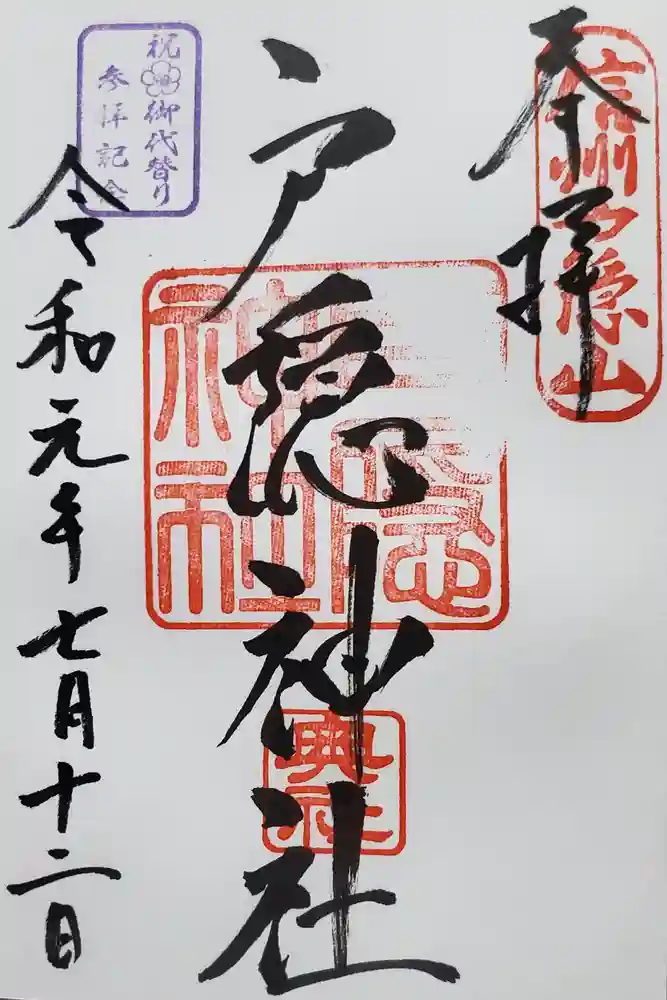 奉拝
信州戸隠山
戸隠神社
奥社
祝御代替り
参拝記念
令和元年七月十二日